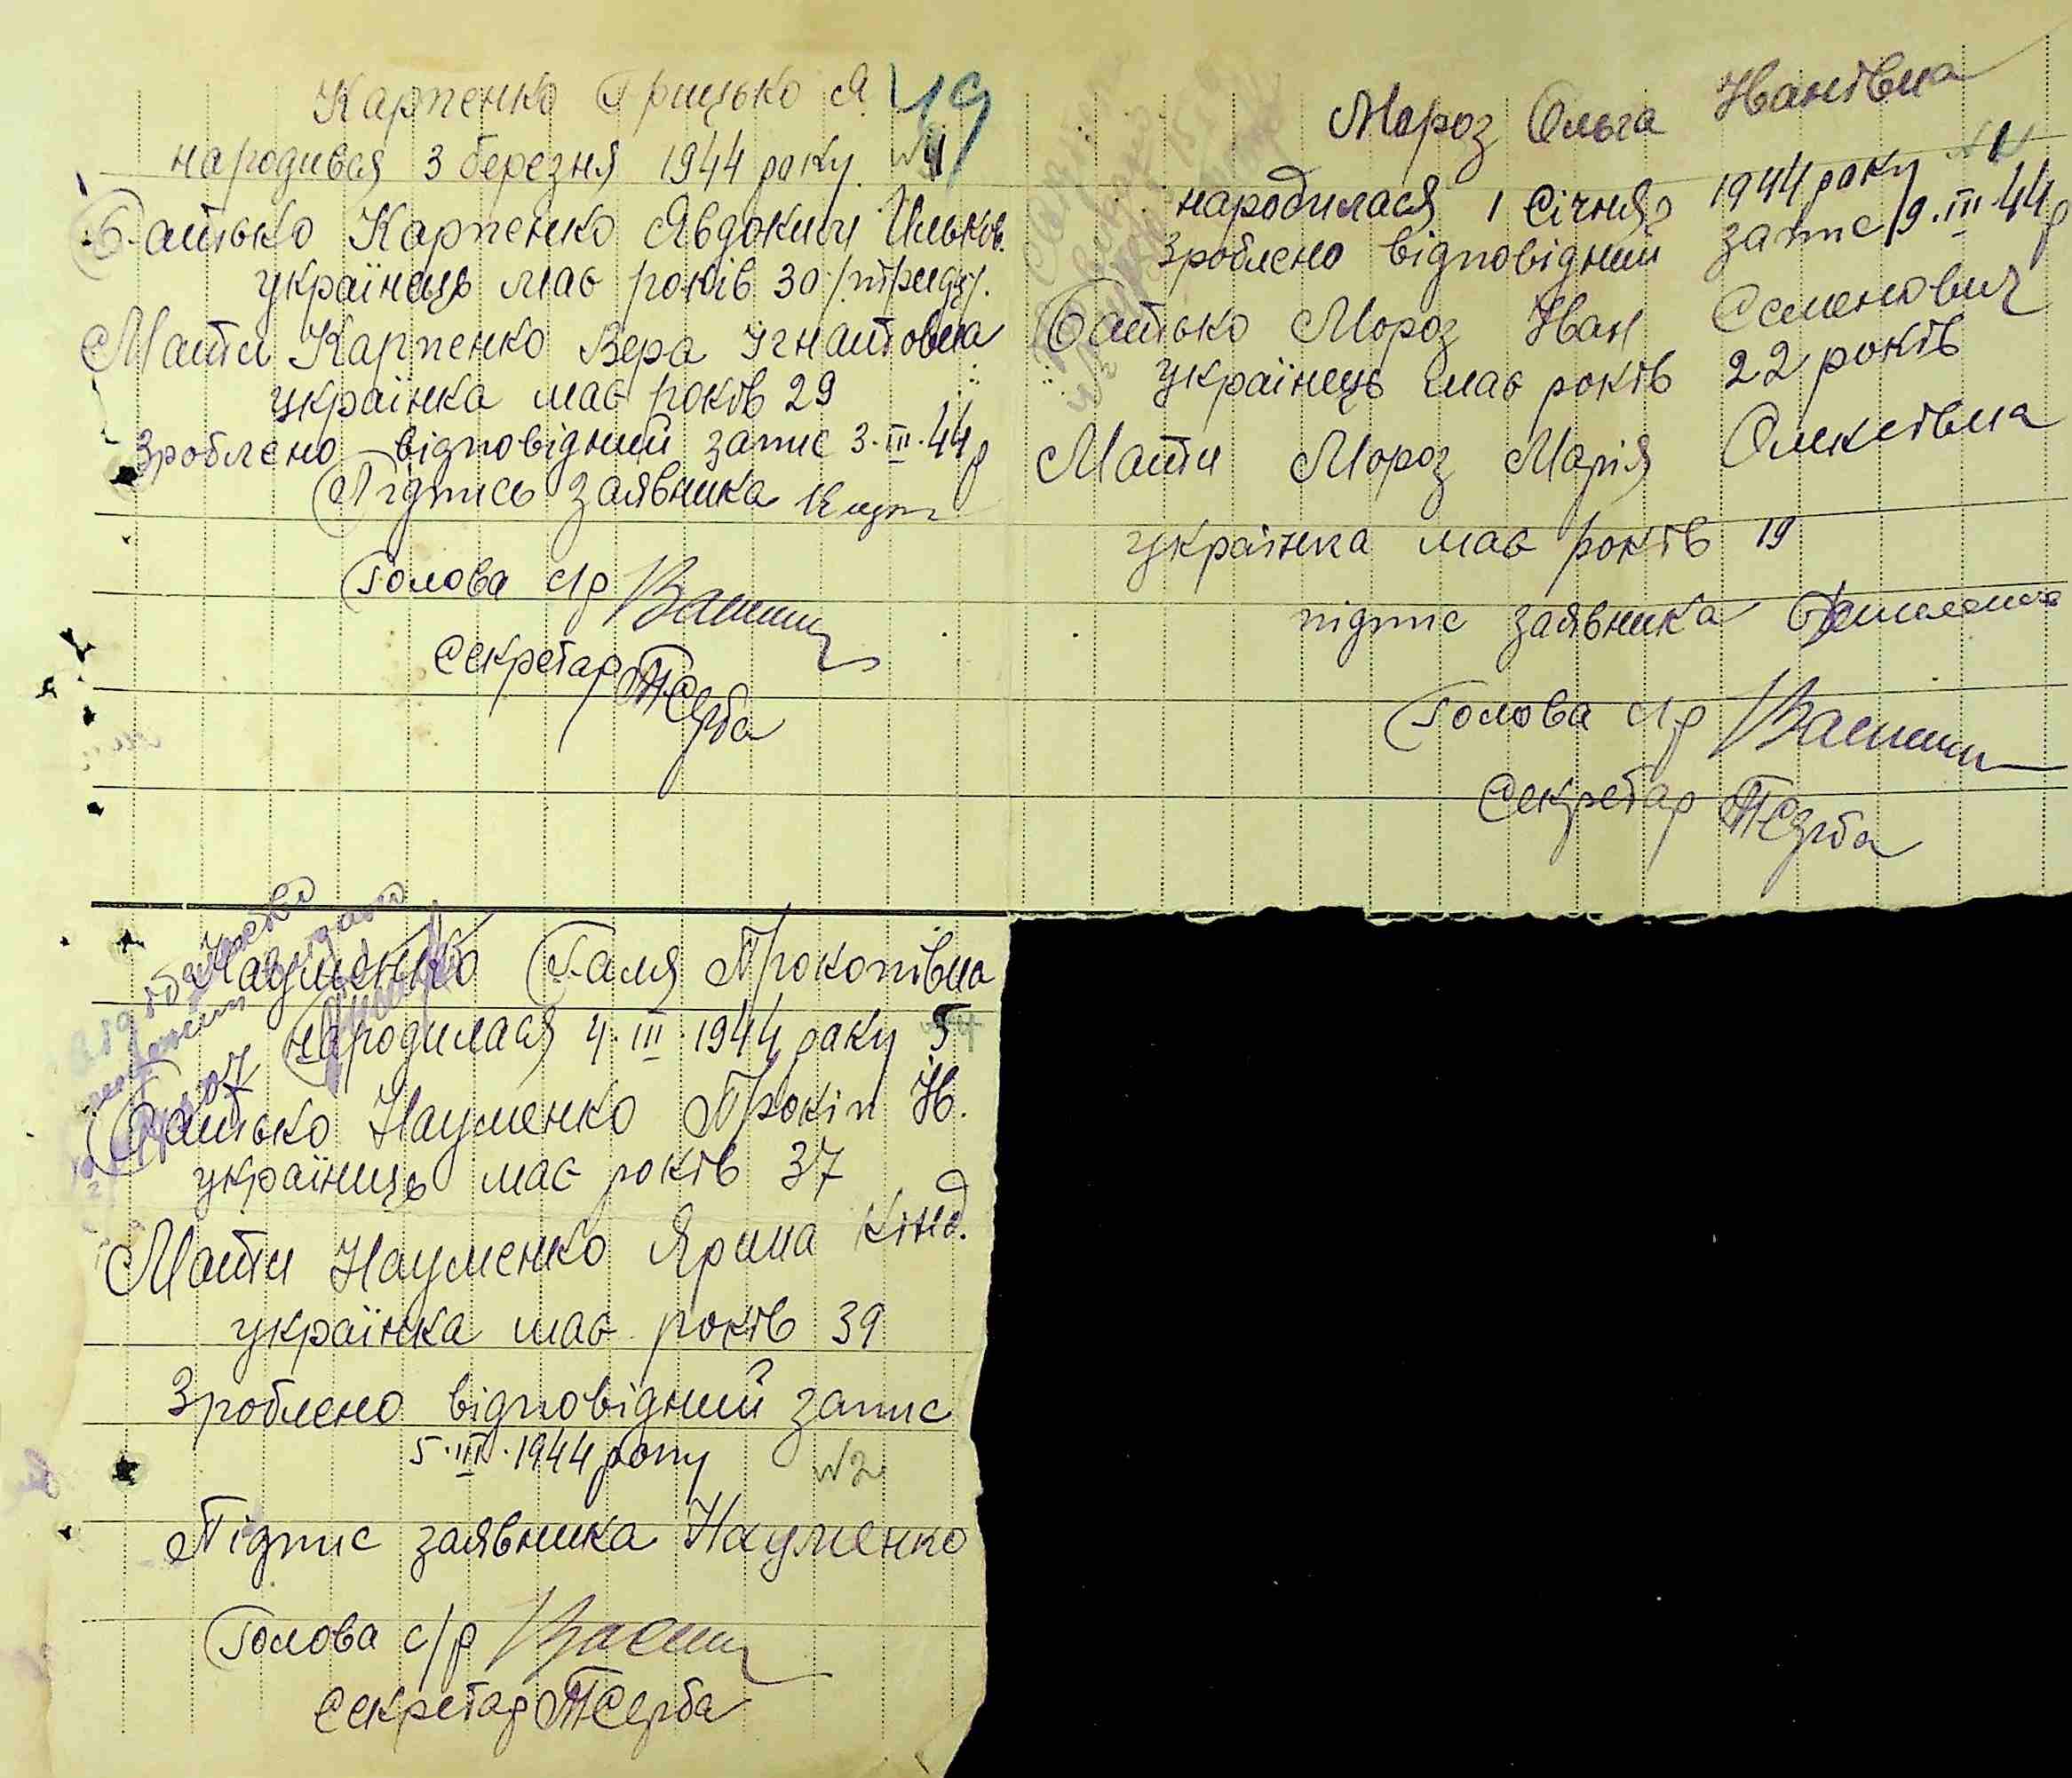 Карпенко Грицько Я. 49
народився 3 березня 1944 року. №4
Батько Карпенко Явдоким Ильков.
українець має років 30 /тридц/.
Мати Карпенко Вера Ігнатовна
українка має років 29
Зроблено відповідний запис 3.III.44 р
Підпись заявника
Голова с/р
Секретар ТСерба
Мороз Ольга Іванівна
народилася 1 Січня 1944 року
Зроблено відповідний запис 19.III.44 р
Батько Мороз Іван Семенович
українець має років 22 років
Мати Мороз Марія Олексівна
українка має років 19
підпис заявника
Голова с/р
Секретар ТСерба
Науменко Галя Прокопівна
народилася 4.III.1944 року 5
Батько Науменко Прокіп Н.
українець має років 37
Мати Науменко Ярина Кінд.
українка має років 39
Зроблено відповідний запис
5.III.1944 року №2
Підпис заявника Науменко
Голова с/р
Секретар ТСерба